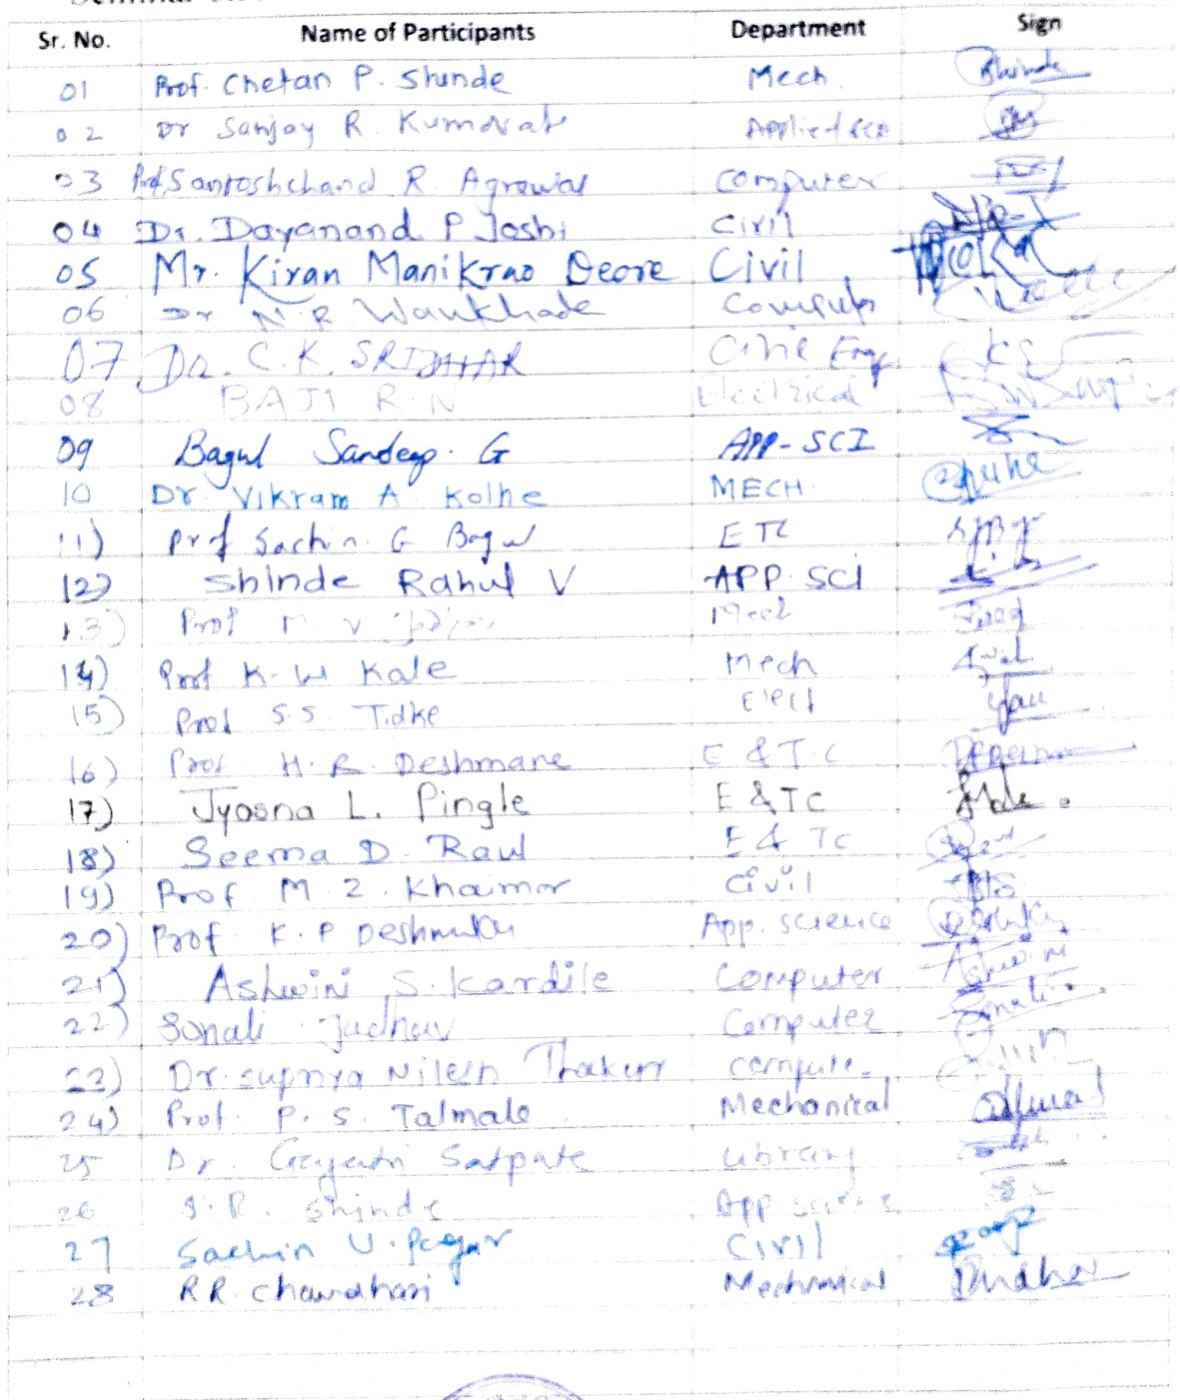 Sr. No. Name of Participants Department Sign
01 Prof. Chetan P. Shinde Mech.
02 Dr Sanjay R. Kumavat Applied sci
03 Prof Santoshchand R. Agrawal computer
04 Dr. Dayanand P Joshi Civil
05 Mr. Kiran Manikrao Deore Civil
06 Dr N R Wankhade Comput
07 Dr. C. K. SRIDHAR Civil Eng
08 BAJI R N Electrical
09 Bagul Sandeep. G APP-SCI
10 Dr. Vikram A Kolhe MECH.
11) Prof Sachin. G Bagul ETC
12) Shinde Rahul V APP. SCI
13) Prof M V Mech
14) Prof K. W Kale Mech
15) Prof S.S. Tidke Elect
16) Prof H. R Deshmane E & T.C
17) Jyosna L. Pingle E & TC
18) Seema D. Raul E & TC
19) Prof M. Z. Khaimar Civil
20) Prof K. P Deshmukh App. science
21) Ashwini S. Kardile Computer Ashwini
22) Sonali Jadhav Computer Sonali
23) Dr. Supriya Nilesh Thakur compute.
24) Prof. P. S. Talmale Mechanical
25 Dr. Gayatri Satpute Library
26 S. R. Shinde App science
27 Sachin U. Pagar Civil
28 R R. Chaudhari Mechanical